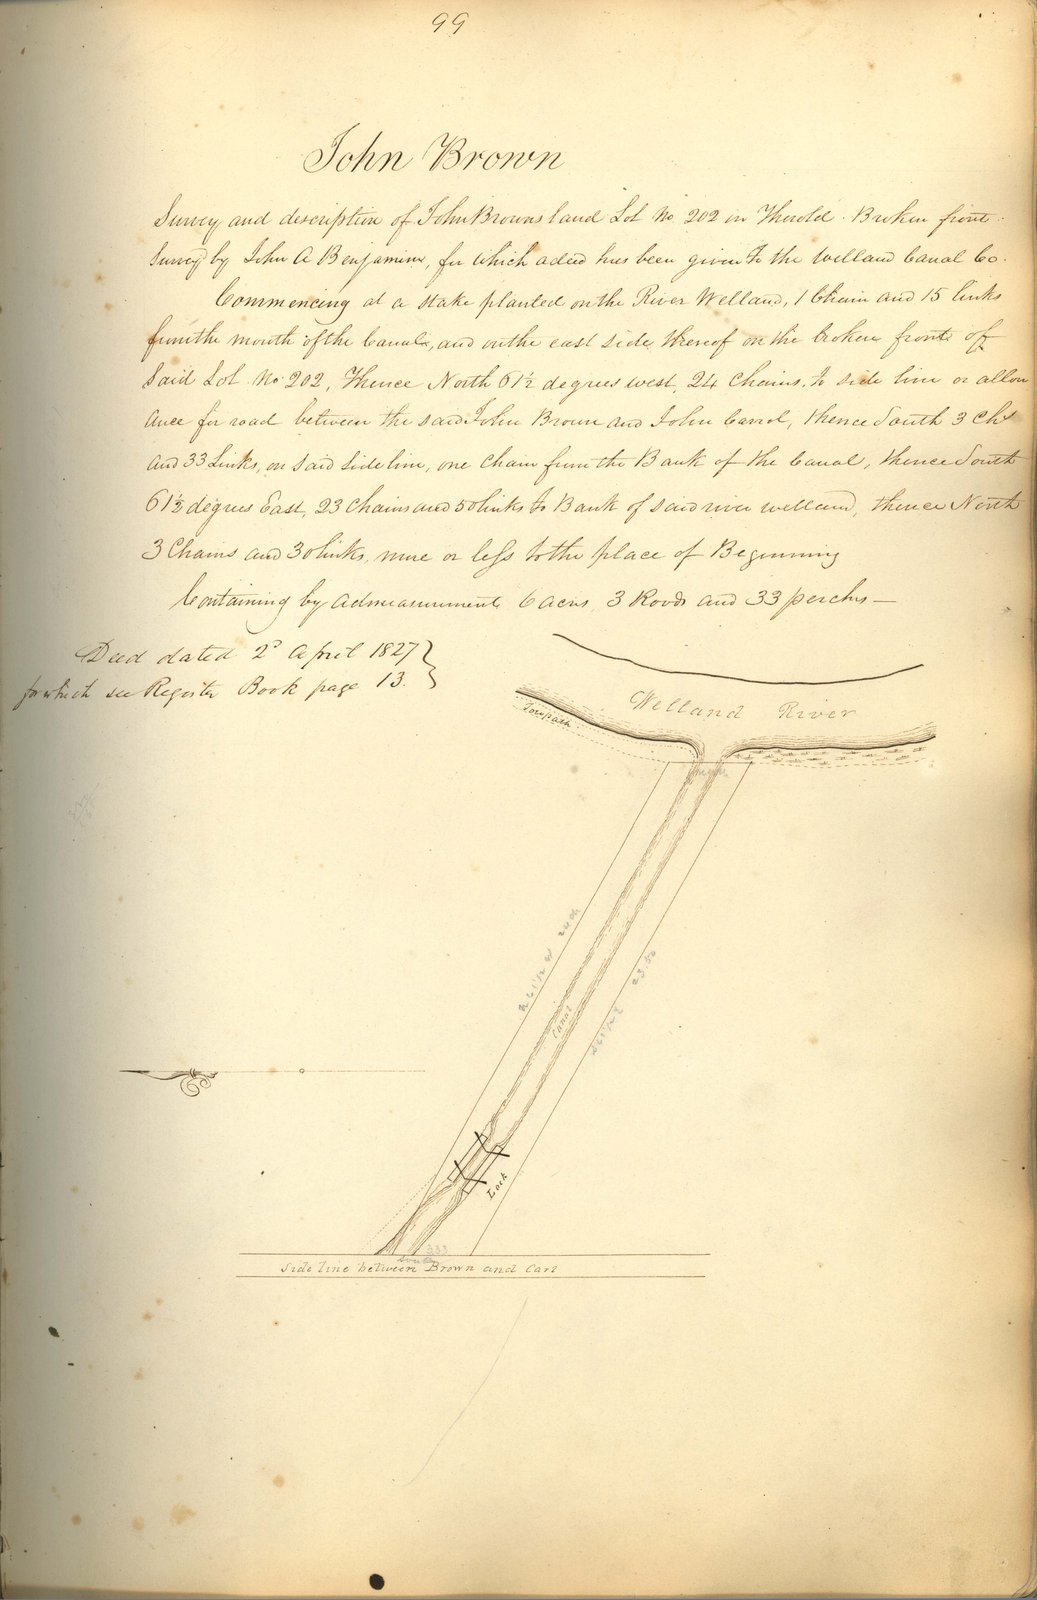 99
John Brown
Survey and description of John Browns land Lot No 202 in Thorold Broken front
Survey by John A Benjamin, for which a deed has been given to the Welland Canal Co.
Commencing at a stake planted on the River Welland, 1 Chain and 15 links
from the mouth of the Canal, and on the east side thereof on the broken front of
said Lot No 202, Thence North 61½ degrees west, 24 Chains, to side line or allow
ance for road between the said John Brown and John Carrol, thence South 3 Chs
and 33 Links, on said side line, one chain from the Bank of the Canal, thence South
61½ degrees East, 23 Chains and 50 links to Bank of said river welland, thence North
3 Chains and 30 links, more or less to the place of Beginning
Containing by admeasurement 6 acres, 3 Roods and 33 perches —
Deed dated 2d April 1827
for which see Register Book page 13.
Welland River
Towpath
N 61½ W 24 ch
S 61½ E 23.50
Canal
Lock
333
South
Side line between Brown and Carl